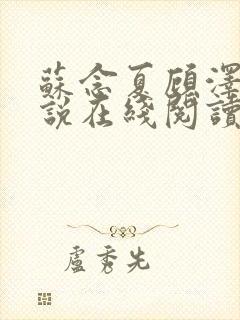 蘇念夏顧澤
說在綫閱讀
盧秀先